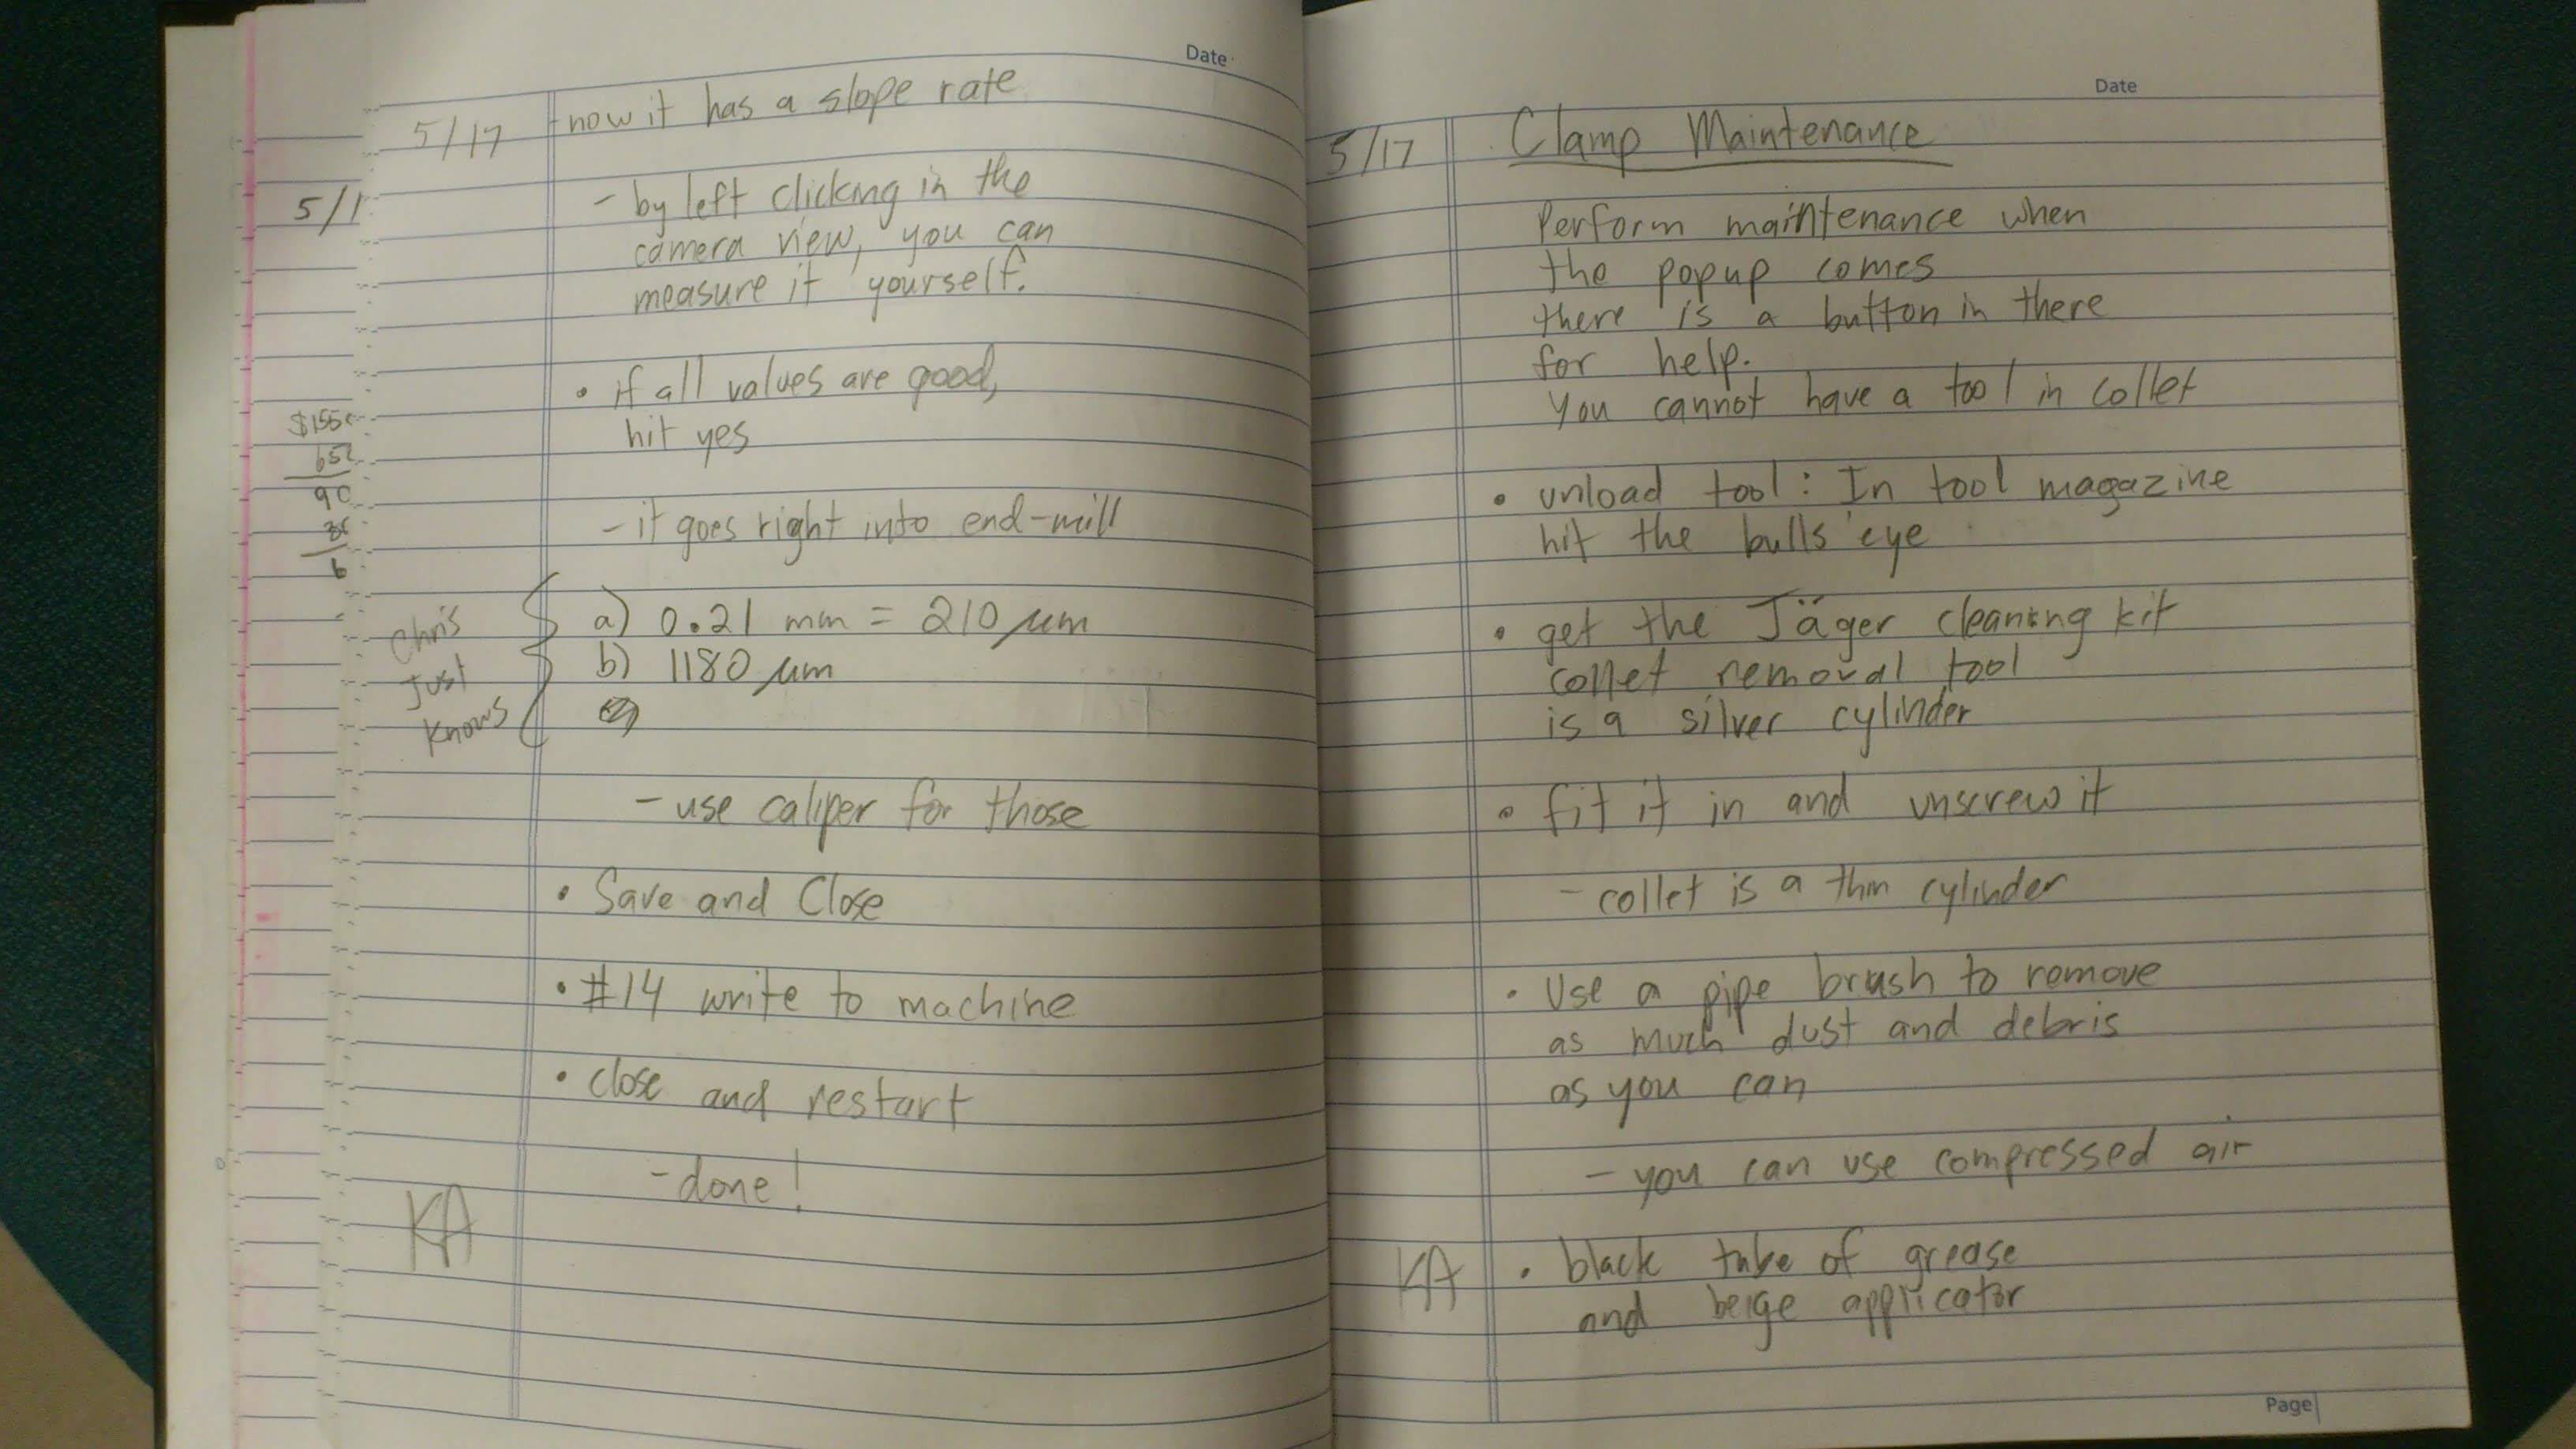 Date
5/17
- now it has a slope rate
- by left clicking in the
camera view, you can
measure it yourself.
• if all values are good,
hit yes
- it goes right into end-mill
Chris
Just
Knows
a) 0.21 mm = 210 µm
b) 1180 µm
- use caliper for those
• Save and Close
• #14 write to machine
• close and restart
- done!
KA
5/1
$155
652
90
6
Date
5/17
Clamp Maintenance
Perform maintenance when
the popup comes
there is a button in there
for help.
You cannot have a tool in collet
• unload tool: In tool magazine
hit the bulls eye
• get the Jäger cleaning kit
collet removal tool
is a silver cylinder
• fit it in and unscrew it
- collet is a thin cylinder
• Use a pipe brush to remove
as much dust and debris
as you can
- you can use compressed air
KA
• black tube of grease
and beige applicator
Page